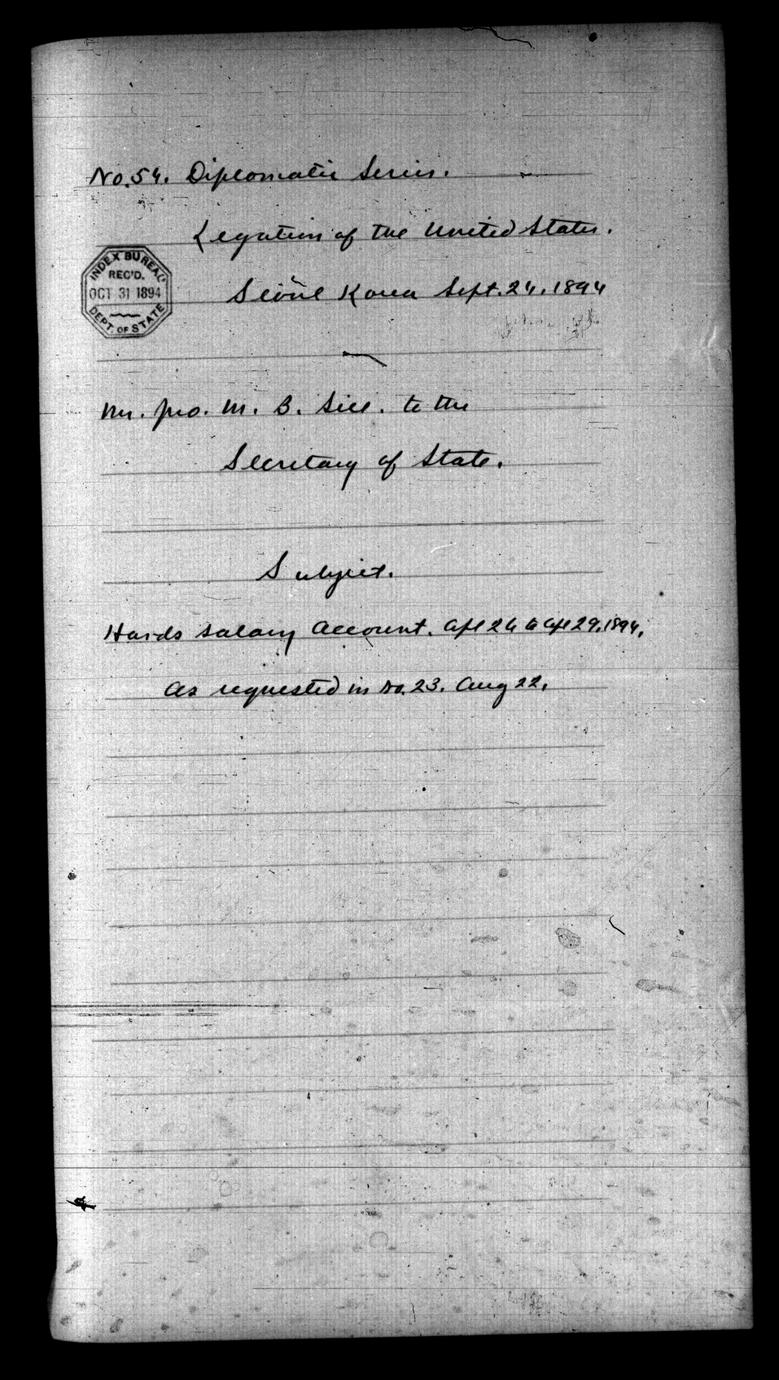 No. 54. Diplomatic Series.
Legation of the United States.
INDEX BUREAU
REC'D.
OCT 31 1894
DEPT. OF STATE
Seoul Korea Sept. 24. 1894
Mr. Jno. M. B. Sill. to the
Secretary of State.
Subject.
Hards Salary Account. Apl 24 to Apl 29. 1894.
As requested in No. 23. Aug 22.